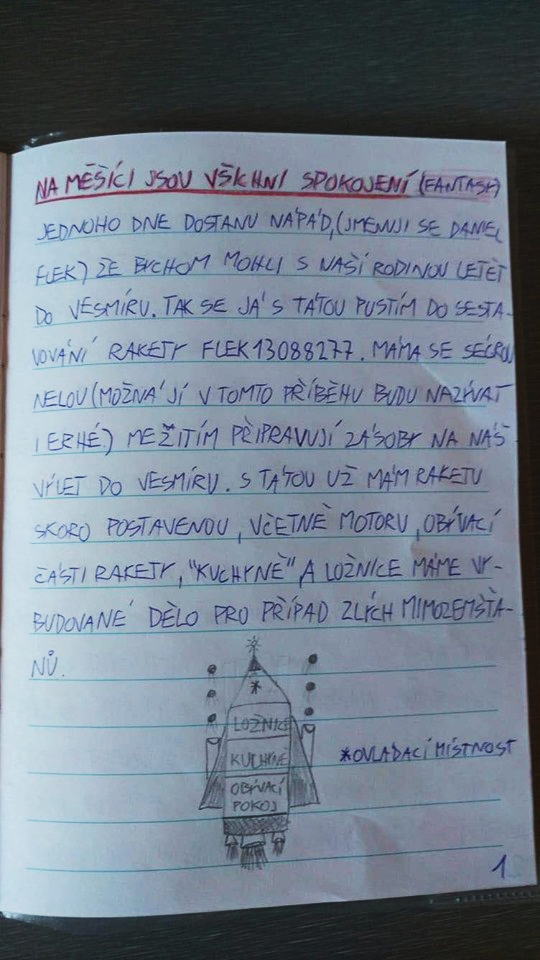 NA MĚŠÍCI JSOU VŠICHNI SPOKOJENÍ (FANTASY)
JEDNOHO DNE DOSTANU NÁPAD, (JMENUJI SE DANIEL
FLEK) ŽE BYCHOM MOHLI S NAŠÍ RODINOU LETĚT
DO VESMÍRU. TAK SE JÁ S TÁTOU PUSTÍM DO SESTA-
VOVÁNÍ RAKETY FLEK13088277. MÁMA SE SÉGROU
NELOU (MOŽNÁ JÍ V TOMTO PŘÍBĚHU BUDU NAZÝVAT
I ERHÉ) MEŽITÍM PŘIPRAVUJÍ ZÁSOBY NA NÁŠ
VÝLET DO VESMÍRU. S TÁTOU UŽ MÁM RAKETU
SKORO POSTAVENOU, VČETNĚ MOTORU, OBÝVACÍ
ČÁSTI RAKETY, "KUCHYNĚ" A LOŽNICE MÁME VY-
BUDOVANÉ DĚLO PRO PŘÍPAD ZLÝCH MIMOZEMŠŤA-
NŮ.
LOŽNICE
KUCHYNĚ
OBÝVACÍ
POKOJ
*OVLÁDACÍ MÍSTNOST
1